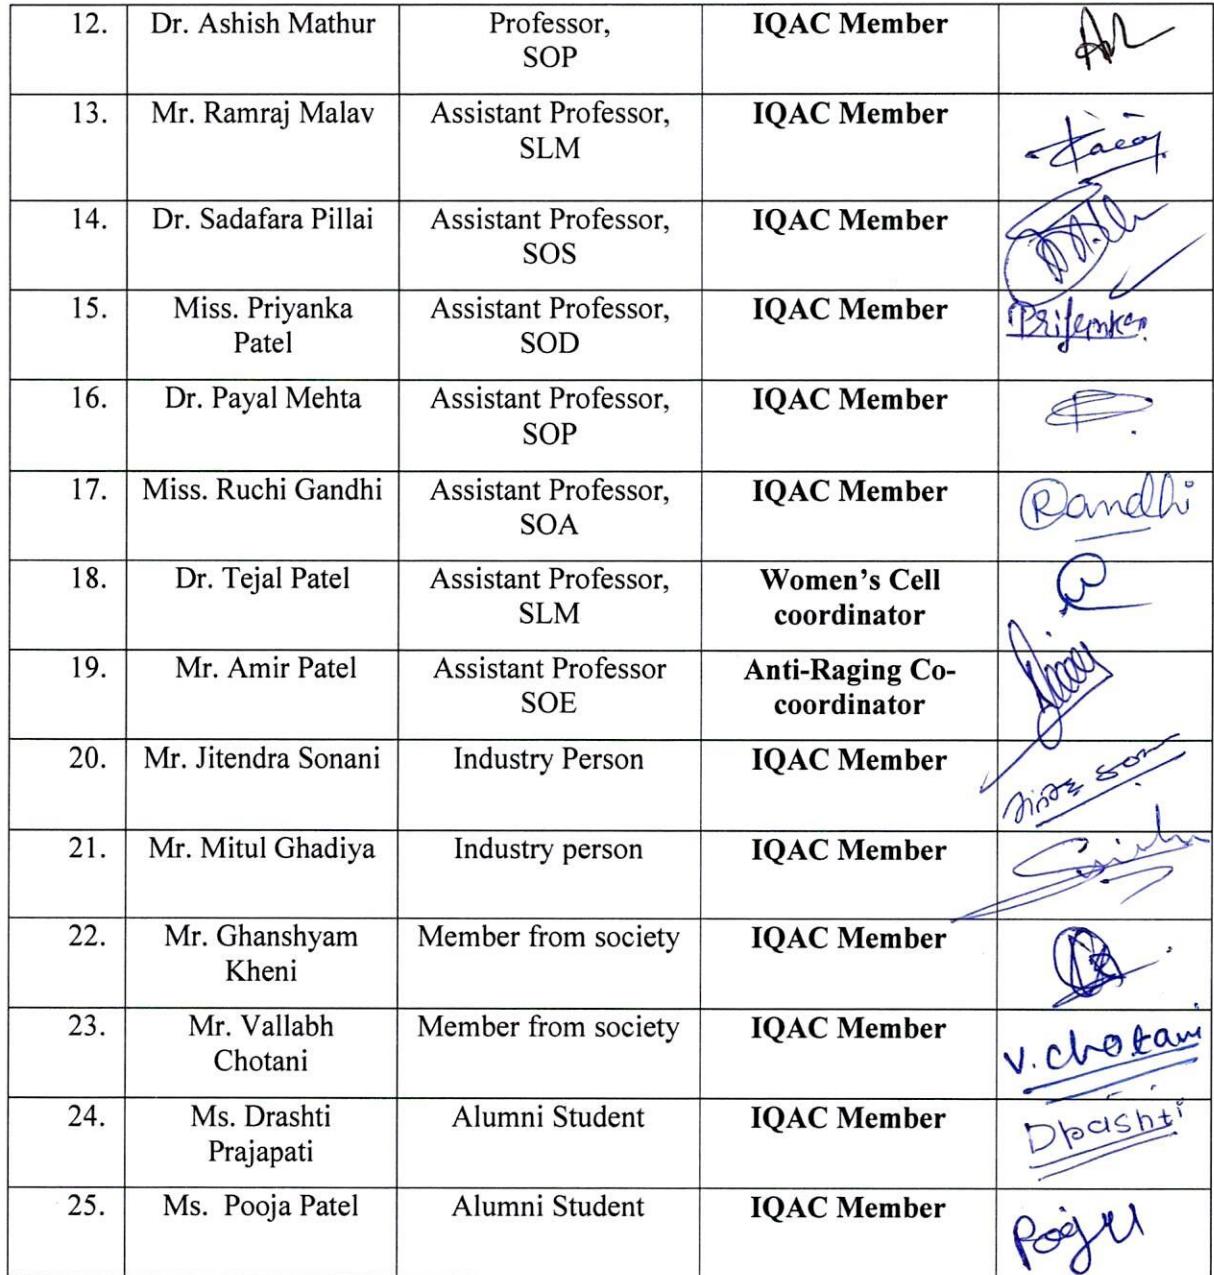 12. Dr. Ashish Mathur Professor, IQAC Member
SOP
13. Mr. Ramraj Malav Assistant Professor, IQAC Member
SLM
14. Dr. Sadafara Pillai Assistant Professor, IQAC Member
SOS
15. Miss. Priyanka Assistant Professor, IQAC Member
Patel SOD
16. Dr. Payal Mehta Assistant Professor, IQAC Member
SOP
17. Miss. Ruchi Gandhi Assistant Professor, IQAC Member
SOA
18. Dr. Tejal Patel Assistant Professor, Women's Cell
SLM coordinator
19. Mr. Amir Patel Assistant Professor Anti-Raging Co-
SOE coordinator
20. Mr. Jitendra Sonani Industry Person IQAC Member
21. Mr. Mitul Ghadiya Industry person IQAC Member
22. Mr. Ghanshyam Member from society IQAC Member
Kheni
23. Mr. Vallabh Member from society IQAC Member
Chotani V. chotani
24. Ms. Drashti Alumni Student IQAC Member
Prajapati Drashti
25. Ms. Pooja Patel Alumni Student IQAC Member